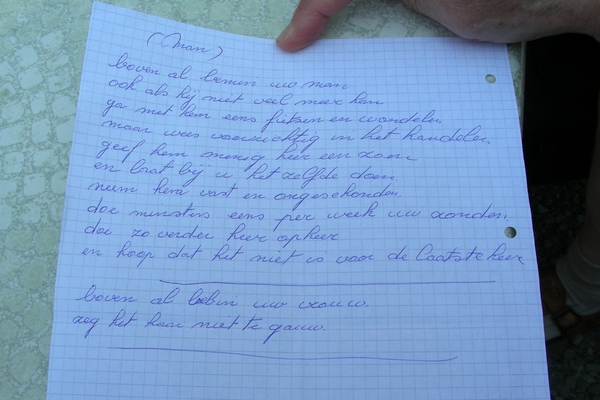 (Man)
boven al bemin uw man
ook als hij niet veel meer kan
ga met hem eens fietsen en wandelen
maar wees voorzichtig in het handelen.
geef hem menig keer een zoen
en laat bij u het zelfde doen.
neem hem vast en ongeschonden.
doe minstens eens per week uw zonden.
doe zo verder keer op keer
en hoop dat het niet is voor de laatste keer
boven al bebin uw vrouw.
zeg het haar niet te gauw.